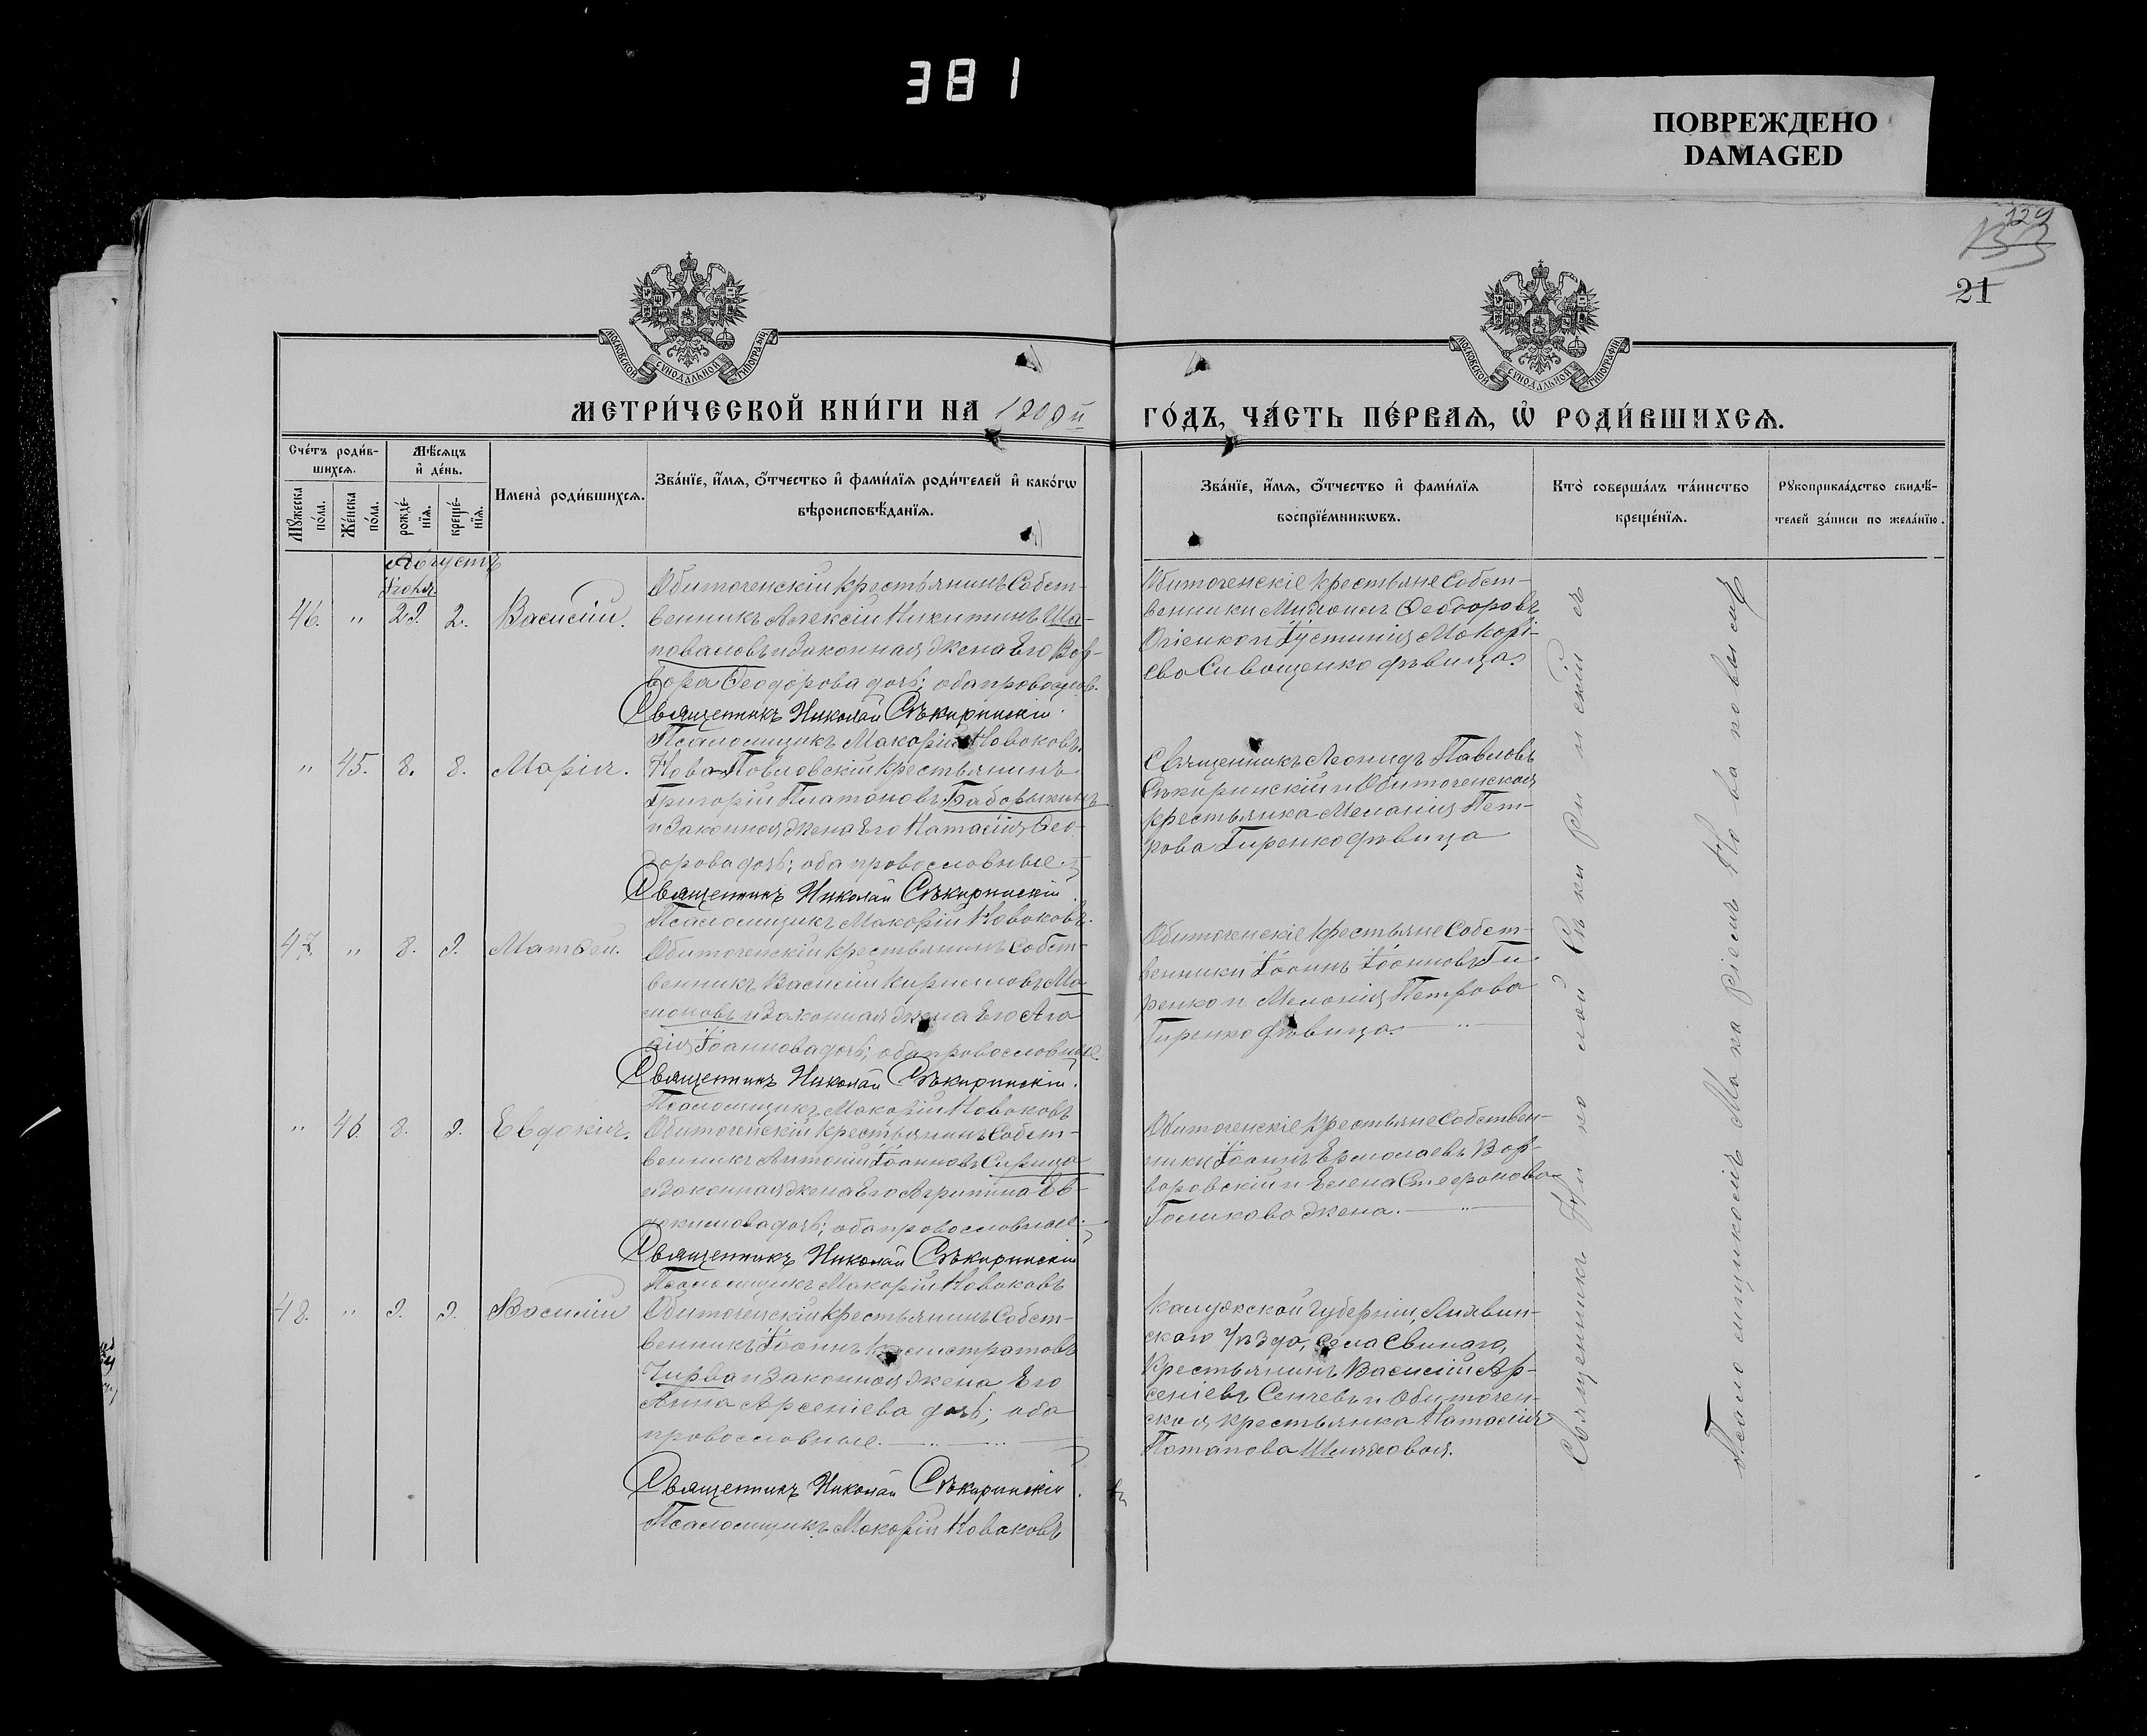 381
ПОВРЕЖДЕНО
DAMAGED
124
21
МОСКОВСКОЙ СѴНОДАЛЬНОЙ ТИПОГРАФІИ
МОСКОВСКОЙ СѴНОДАЛЬНОЙ ТИПОГРАФІИ
МЕТРИ́ЧЕСКОЙ КНИ́ГИ НА
ГО́ДЪ, ЧА́СТЬ ПЕ́РВАЯ, Ѡ҆ РОДИ́ВШИХСЯ.
Сче́тъ роди́в-
шихся.
Мѣ́сяцъ
и҆ де́нь.
Мꙋ́жеска
по́ла.
Же́нска
по́ла.
рожде́-
нїя.
креще́-
нїя.
Имена̀ роди́вшихся.
Зва́нїе, и҆́мя, ѻ҆́тчество и҆ фами́лїя роди́телей и҆ како́гѡ
вѣроисповѣ́данїя.
Зва́нїе, и҆́мя, ѻ҆́тчество и҆ фами́лїя
воспрїе́мникѡвъ.
Кто̀ соверша́лъ та́инство
креще́нїя.
Рꙋкоприкла́дство свидѣ́-
телей за́писи по жела́нїю.
Августъ
Іюля
46. " 29. 2. Василій.
Обиточенскій крестьянинъ Собст-
венникъ Алексій Никитинъ Ша-
поваловъ и законная жена его Вар-
вара Ѳеодорова дочь; оба православ.
Священникъ Николай Сѣкиринскій.
Псаломщикъ Макарій Новаковъ.
Обиточенскіе крестьяне Собст-
венники Ѳеодоровъ
и Іустинія Макарі-
ева Сивощенко дѣвица
" 45. 8. 8. Марія.
Ново-Павловскій крестьянинъ
Григорій Платоновъ Бабарыкинъ
и законная жена его Наталія Ѳео-
дорова дочь; оба православные.
Священникъ Николай Сѣкиринскій.
Псаломщикъ Макарій Новаковъ.
Священникъ Леонидъ Павловъ
Сѣкиринскій и Обиточенская
крестьянка Меланія Пет-
рова Гиренко дѣвица
47. " 8. 9. Матѳей.
Обиточенскій крестьянинъ Собст-
венникъ Василій Кирилловъ Ма-
моновъ и законная жена его Ага-
ѳія Іоаннова дочь; оба православные.
Священникъ Николай Сѣкиринскій.
Псаломщикъ Макарій Новаковъ
Обиточенскіе крестьяне Собст-
венники Іоаннъ Іоанновъ Ги-
ренко и Меланія Петрова
Гиренко дѣвица.
" 46. 8. 9. Евдокія.
Обиточенскій крестьянинъ Собст-
венникъ Антоній Іоанновъ Сирица
и законная жена его Агрипина Ев-
докимова дочь; оба православные.
Священникъ Николай Сѣкиринскій
Псаломщикъ Макарій Новаковъ
Обиточенскіе крестьяне Собствен-
ники Іоаннъ Ермолаевъ Вар-
варовскій и Елена Стефанова
Голикова жена.
48. " 9. 9. Василій
Обиточенскій крестьянинъ Собст-
венникъ Іоаннъ Калистратовъ
Чирва и законная жена его
Анна Арсеніева дочь; оба
православные.
Священникъ Николай Сѣкиринскій.
Псаломщикъ Макарій Новаковъ
Калужской губерніи, Лихвин-
скаго уѣзда, села Свинаго,
крестьянинъ Василій Ар-
сеніевъ Сенчевъ и Обиточен-
ская крестьянка Наталія
Потапова Шляховая.
Священникъ Николай Сѣкиринскій съ
Псаломщикомъ Макаріемъ Новаковымъ